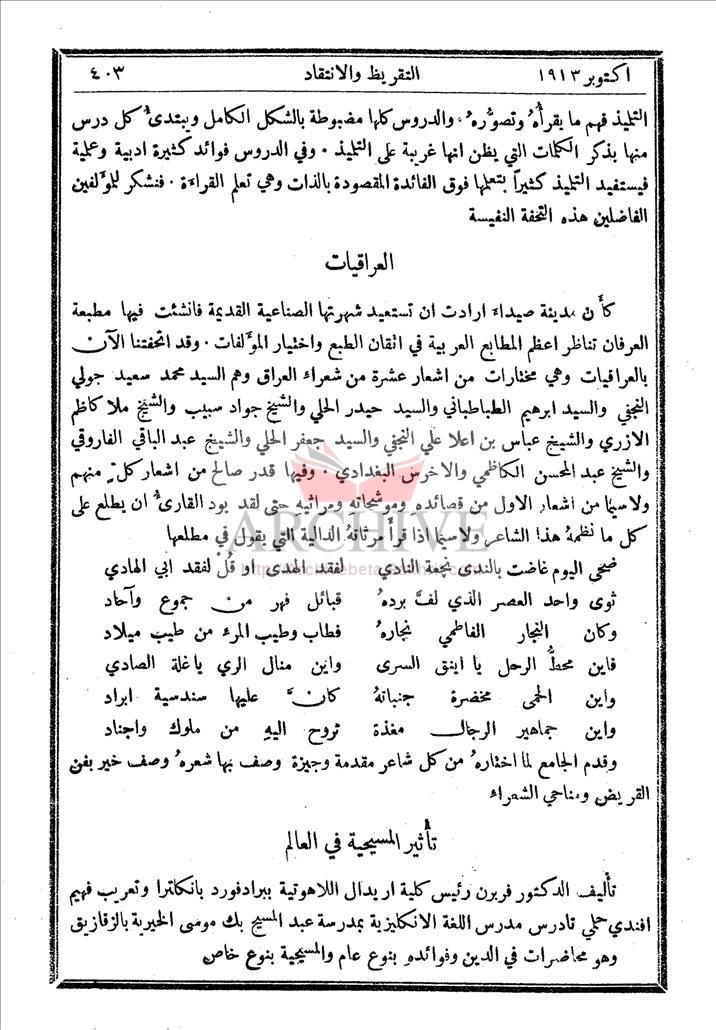 اكتوبر ١٩١٣ التقريظ والانتقاد ٤٠٣
التلميذ فهم ما يقرأُهُ وتصوُّره ُ. والدروس كلها مضبوطة بالشكل الكامل ويبتدئُ كل درس
منها بذكر الكلمات التي يظن انها غريبة على التلميذ . وفي الدروس فوائد كثيرة ادبية وعلمية
فيستفيد التلميذ كثيراً بتعلمها فوق الفائدة المقصودة بالذات وهي تعلم القراءة . فنشكر للمؤلفين
الفاضلين هذه التحفة النفيسة
العراقيات
كأَن مدينة صيداء ارادت ان تستعيد شهرتها الصناعية القديمة فانشئت فيها مطبعة
العرفان تناظر اعظم المطابع العربية في اتقان الطبع واختيار المؤلفات . وقد اتحفتنا الآن
بالعراقيات وهي مختارات من اشعار عشرة من شعراء العراق وهم السيد محمد سعيد جولي
النجفي والسيد ابرهيم الطباطباني والسيد حيدر الحلي والشيخ جواد سبيب والشيخ ملا كاظم
الازري والشيخ عباس بن اعلا علي النجفي والسيد جعفر الحلي والشيخ عبد الباقي الفاروقي
والشيخ عبد المحسن الكاظمي والاخرس البغدادي . وفيها قدر صالح من اشعار كلٍّ منهم
ولاسيما من اشعار الاول من قصائده وموشحاته ومراثيه حتى لقد يود القارئُ ان يطلع على
كل ما نظمهُ هذا الشاعر ولا سيما اذا قرأَ مرثاتهُ الدالية التي يقول في مطلعها
ضحى اليوم غاضت بالندى نجعة النادي لفقد الهدى او قُلْ لفقد ابي الهادي
ثوى واحد العصر الذي لفَّ بردهُ قبائل فهر من جموع وآحاد
وكان النجار الفاطمي نجارهُ فطاب وطيب المرء من طيب ميلاد
فاين محطُّ الرحل يا اينق السرى واين منال الري يا غلة الصادي
واين الحمى مخضرة جنباتهُ كانَّ عليها سندسية ابراد
واين جماهير الرجال مغذة تروح اليهِ من ملوك واجناد
وقدم الجامع لما اختارهُ من كل شاعر مقدمة وجيزة وصف بها شعرهُ وصف خبير بفن
القريض ومناحي الشعراء
تأثير المسيحية في العالم
تأليف الدكتور فربرن رئيس كلية اريدال اللاهوتية ببرادفورد بانكلترا وتعريب فهيم
افندي حلمي تادرس مدرس اللغة الانكليزية بمدرسة عبد المسيح بك موسى الخيرية بالزقازيق
وهو محاضرات في الدين وفوائده بنوع عام والمسيحية بنوع خاص
ARCHIVE